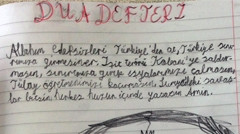 DUA DEFTERİ
Allahım edepsizleri Türkiye'den at, Türkiye sını
rımıza girmesinler. Işit terörü Kobani'ye saldır
masın, sınırımıza girip eşyalarımızı çalmasın,
Tülay öğretmenimizi kaçırmasın. Suriyedeki savaş
lar bitsin, herkes huzur içinde yaşasın Amin.